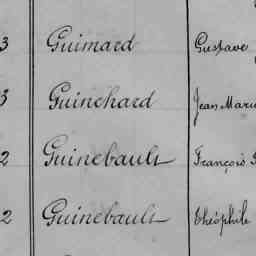 3 Guimard Gustave
3 Guinchard Jean Marie
2 Guinebault François
2 Guinebault Théophile